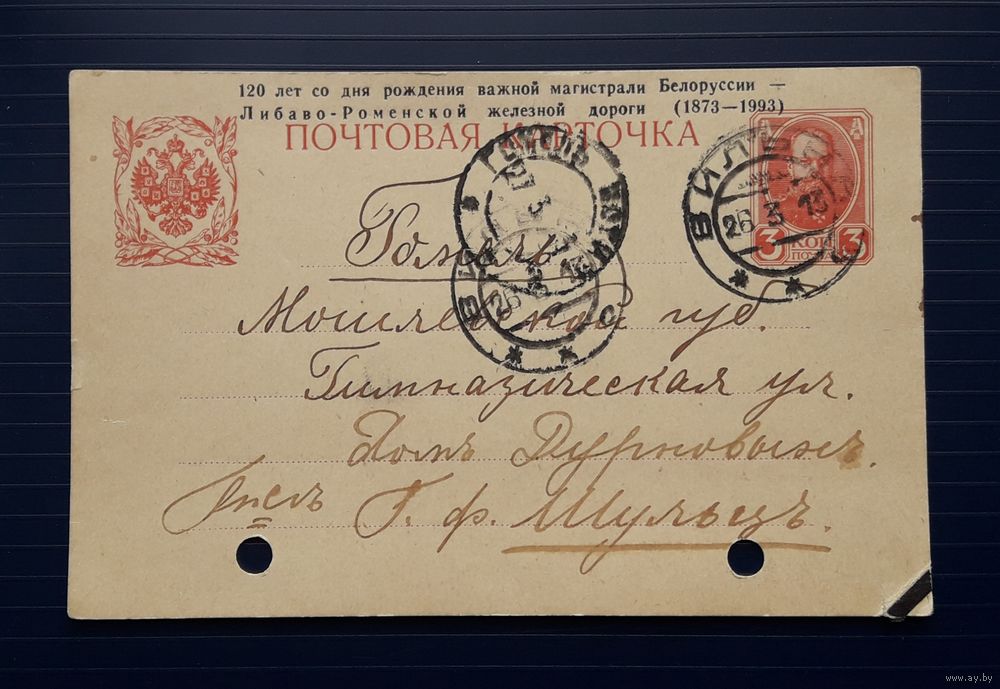 120 лет со дня рождения важной магистрали Белоруссии —
Либаво-Роменской железной дороги (1873—1993)
ПОЧТОВАЯ КАРТОЧКА
А А
3 КОП 3
ВИЛЬ
26 3 13
ГОМЕЛЬ
27 3
ВИ
26 3 13
Гомель
Могилевской губ.
Гимназическая ул.
Домъ Дурновыхъ.
Г. Ф. Шульцъ.
www.ay.by